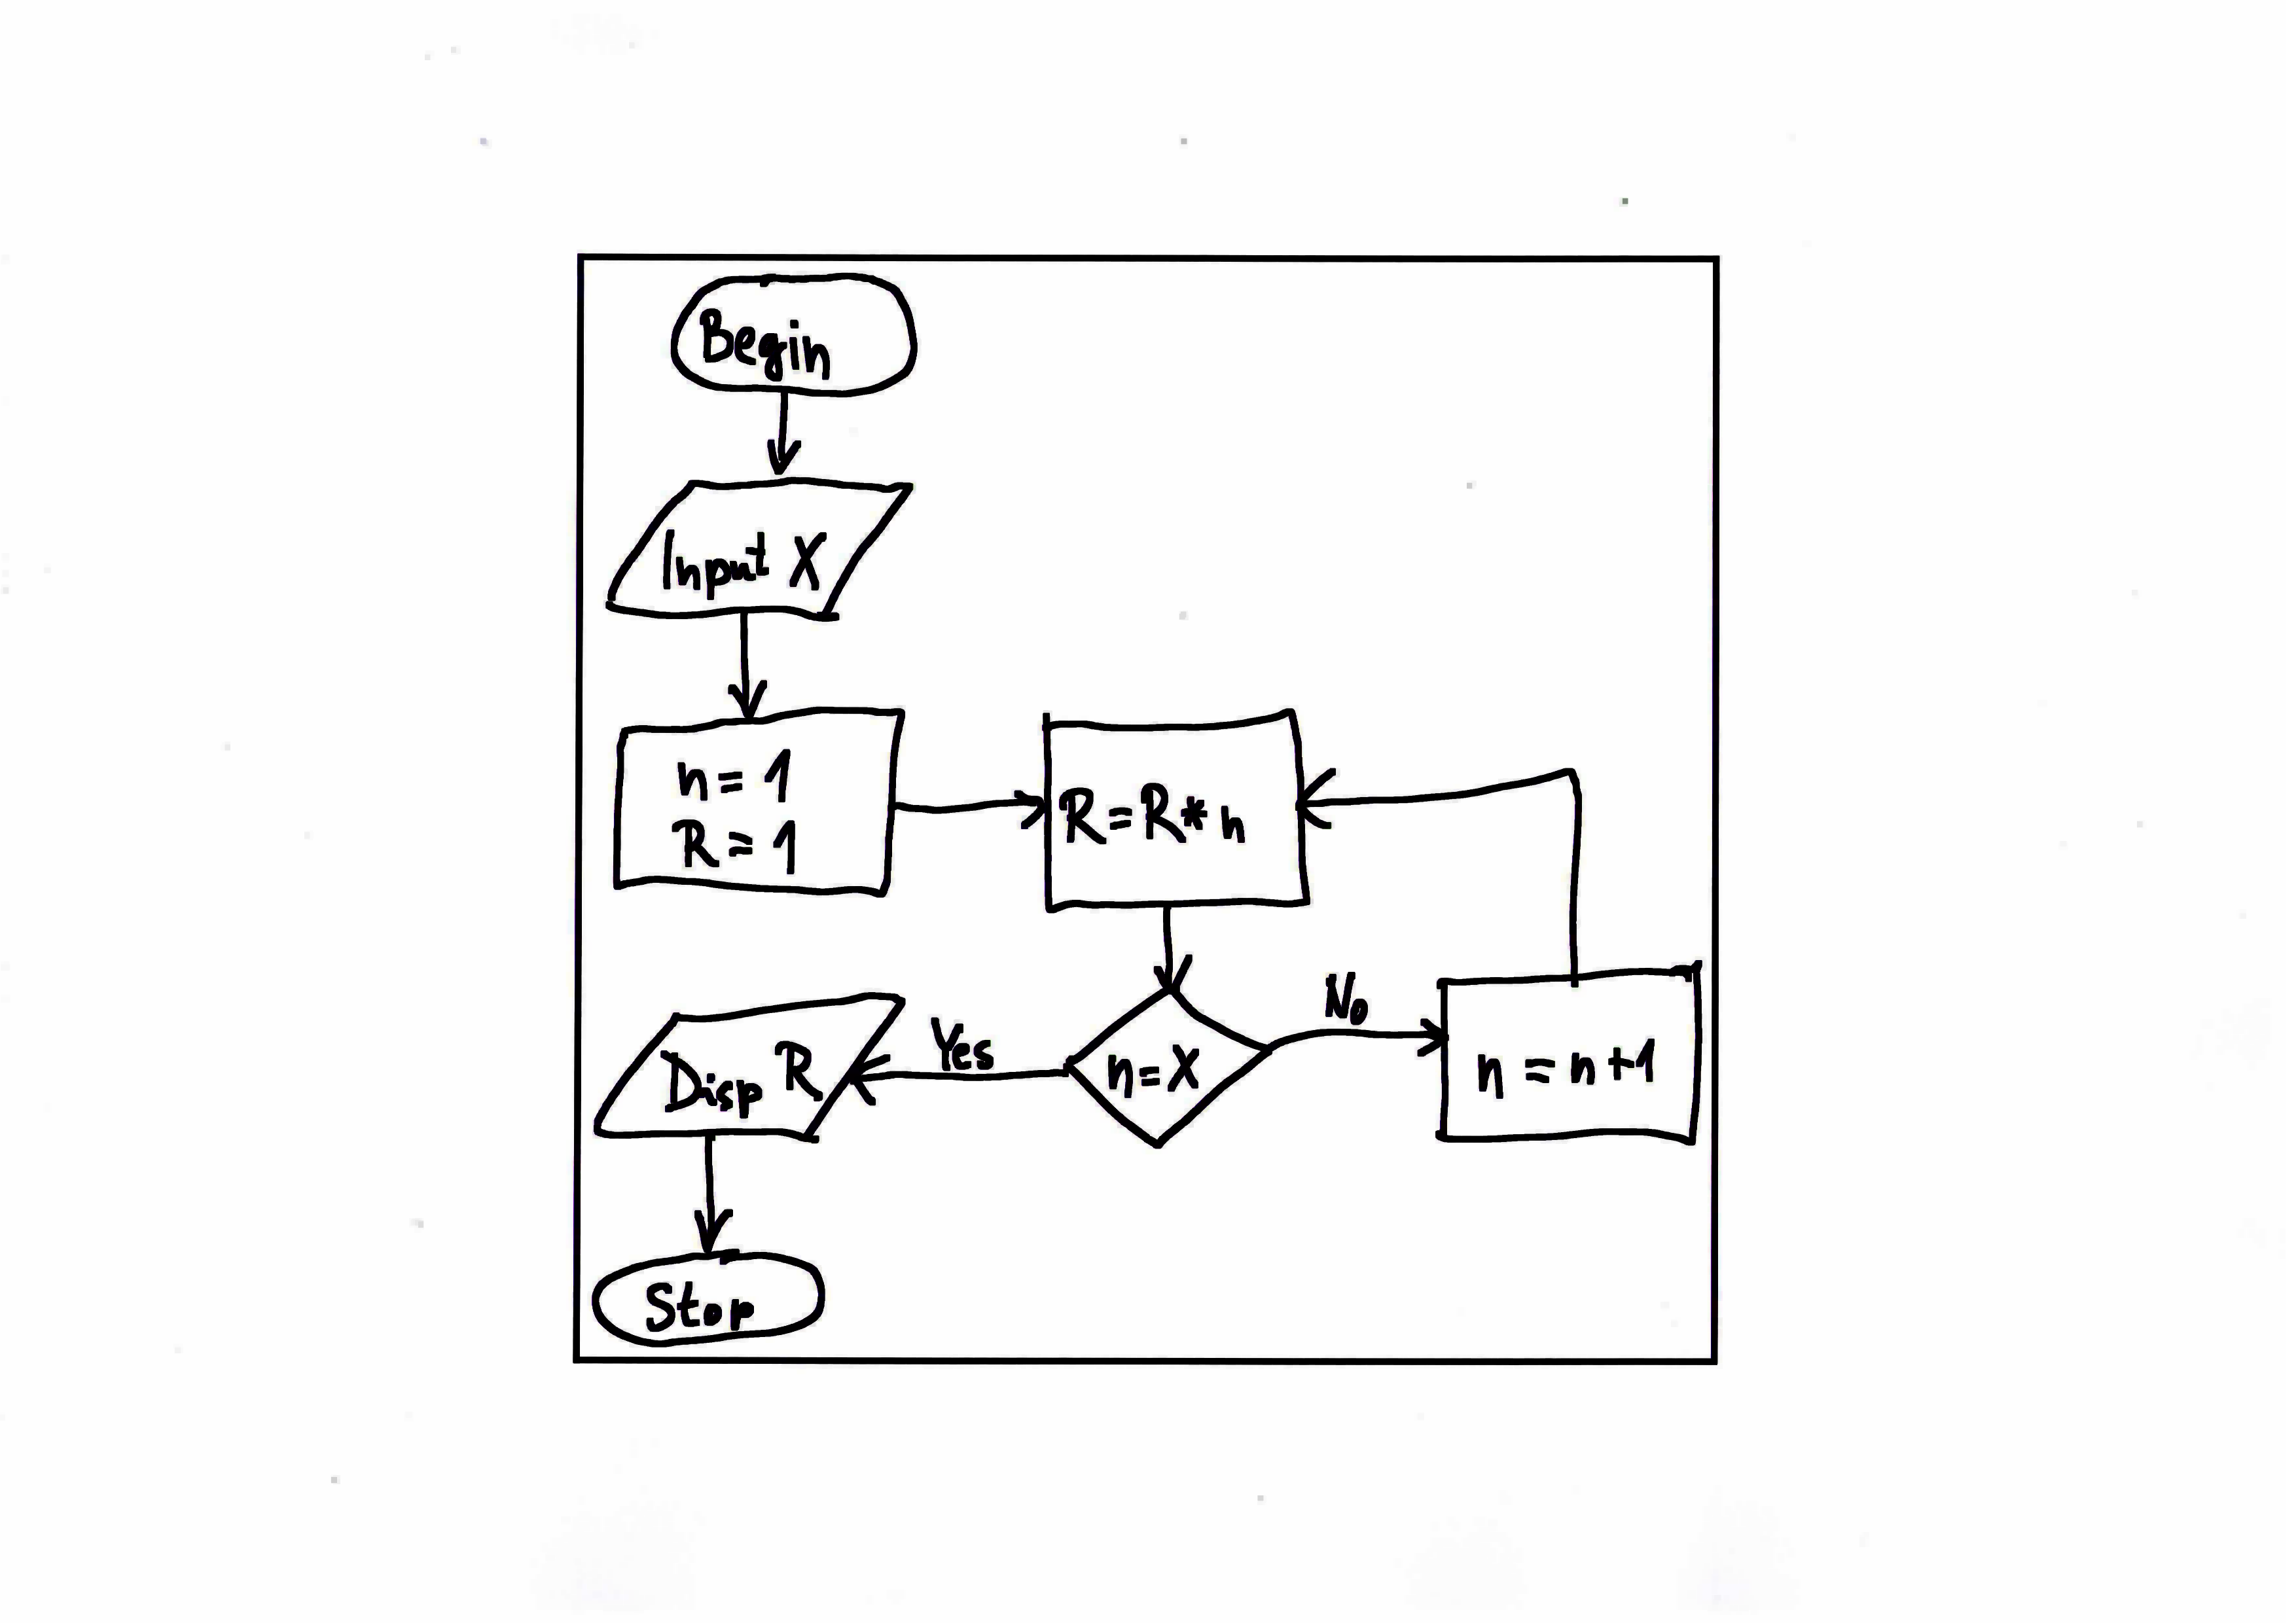 Begin
Input X
n = 1
R = 1
R = R * n
n = X
No
n = n + 1
Yes
Disp R
Stop